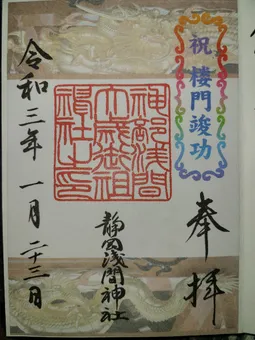 祝 楼門竣功
奉拝
神部浅間
大歳御祖
神社之印
静岡浅間神社
令和三年一月二十三日